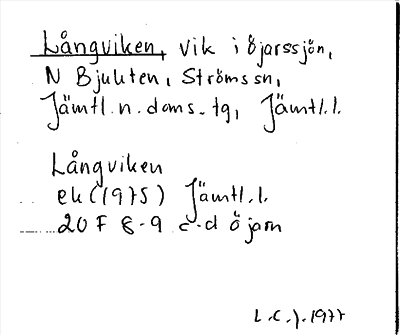 Långviken, vik i Öjarssjön,
N Bjuluten, Strömssn,
Jämtl.n.doms.tg, Jämtl.l.
Långviken
ek (1975) Jämtl.l.
20 F 8-9 c-d Öjarn
L.C.J. 1977